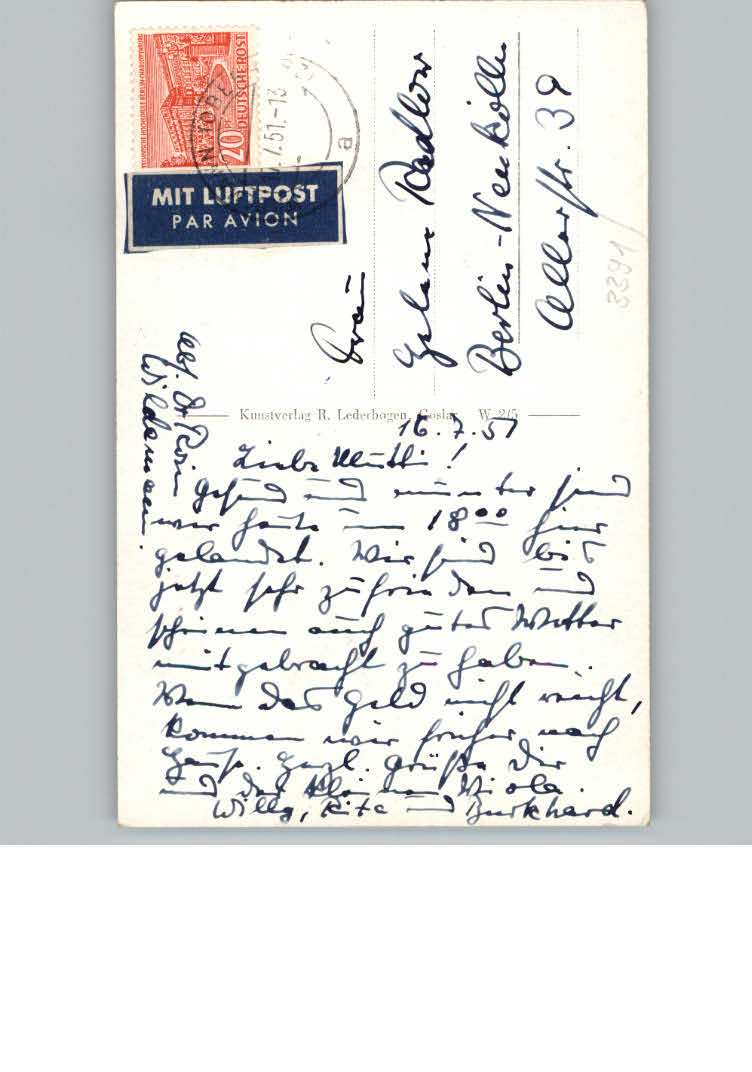 20
DEUTSCHE POST
7.51.-13
a
MIT LUFTPOST
PAR AVION
Frau
Helene Radlow
Berlin-Neukölln
Allerstr. 39
3391
Kunstverlag R. Lederbogen, Goslar W 2/5
Abs. Dr Rosin
Wildemann.
16.7.51
Liebe Mutti!
Gesund und munter sind
wir heute um 18⁰⁰ hier
gelandet. Wir sind bis
jetzt sehr zufrieden und
scheinen auch gutes Wetter
mitgebracht zu haben.
Wenn das Geld nicht reicht,
kommen wir früher nach
Hause. Herzl. Grüße Dir
und der kleinen Viola.
Willy, Rita und Burkhard.